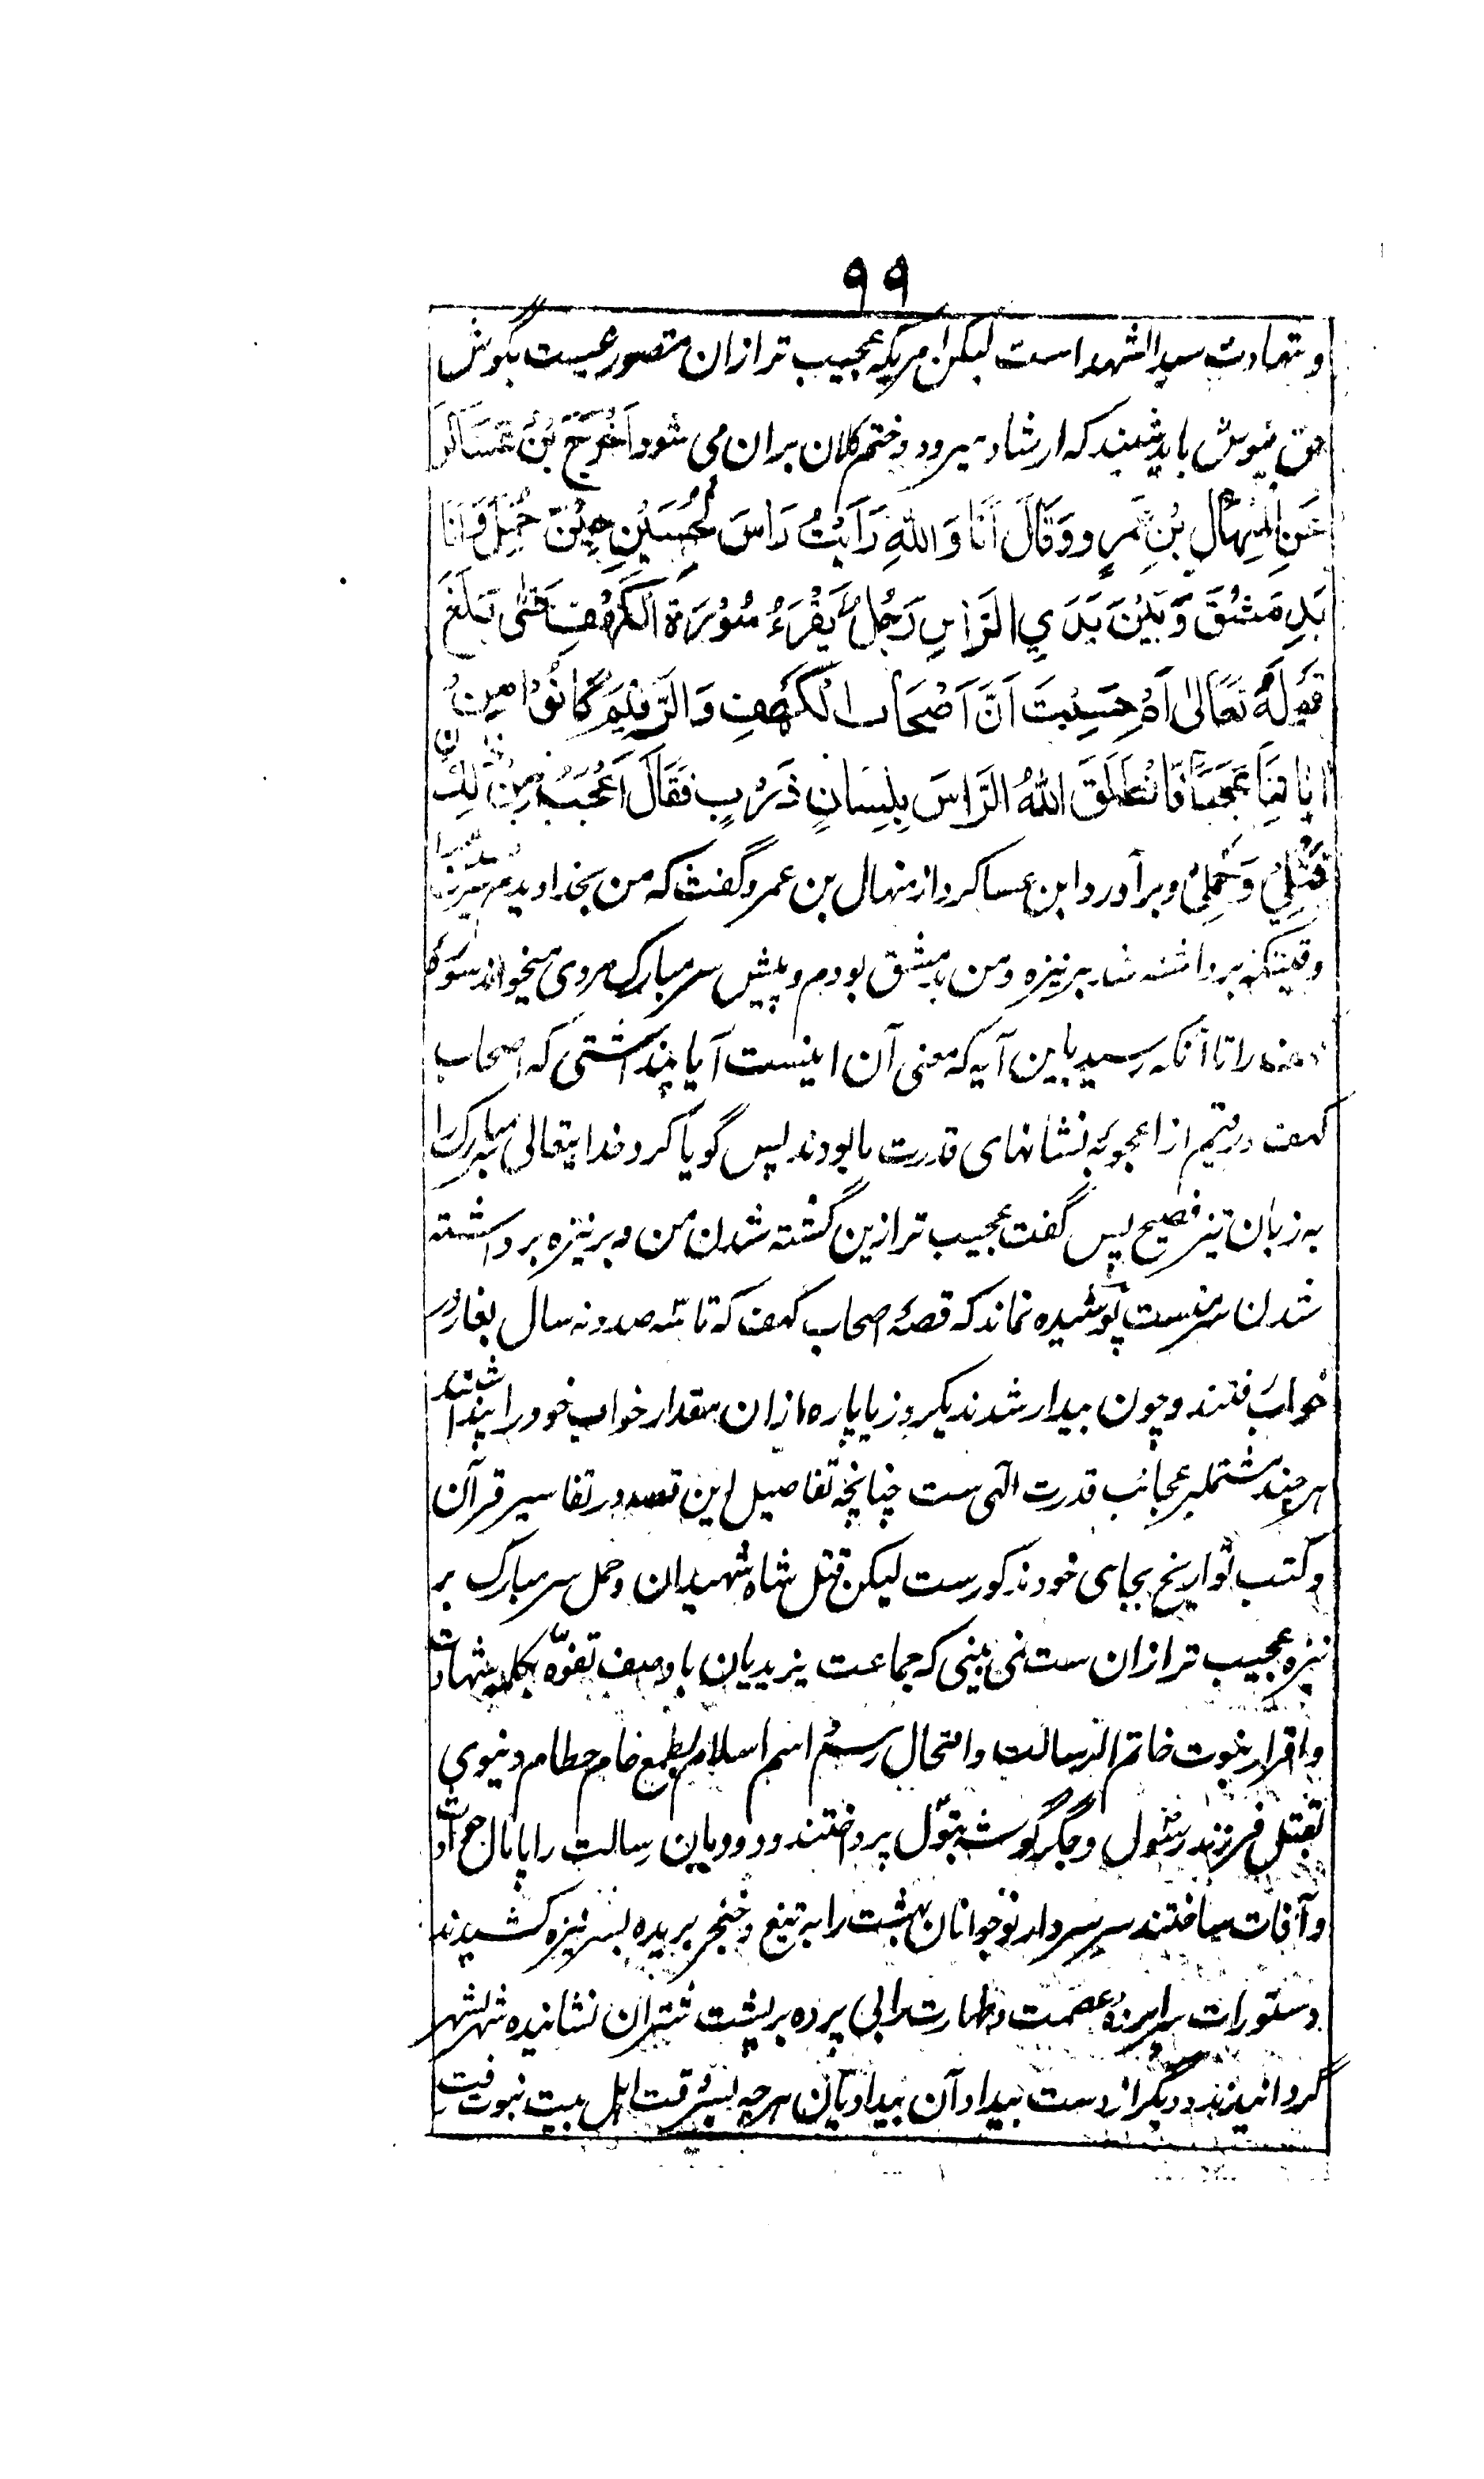 ۹۹
و شهادت سید الشهداست لیکن امریکه عجیب تر ازان متصور عیست بگوش
حق نیوش باید شنید که ارشاد میرود و ختم کلان بران می شود اَخْرَجَ بْنُ عَسَاکَرَ
عَنِ الْمِنْهَالِ بْنِ عَمْرٍو وَقَالَ اَنَا وَاللهِ رَاَیْتُ رَاسَ الْحُسَیْنِ حِیْنَ حُمِلَ وَاَنَا
بَدِمَشْقَ وَبَیْنَ یَدَیِ الرَّاسِ رَجُلٌ یَقْرَءُ سُوْرَةَ الْکَهْفِ حَتّٰی بَلَغَ
قَوْلَهُ تَعَالٰی اَمْ حَسِبْتَ اَنَّ اَصْحَابَ الْکَهْفِ وَالرَّقِیْمِ کَانُوْا مِنْ
اٰیَاتِنَا عَجَبًا فَانْطَقَ اللهُ الرَّاسَ بِلِسَانٍ ذَرْبٍ فَقَالَ اَعْجَبُ مِنْ ذٰلِکَ
قَتْلِیْ وَحَمْلِیْ و برآورد ابن عساکر از منهال بن عمرو گفت که من بخدا دیدم سر
وقتیکه برداشته شد بر نیزه و من بدمشق بودم و پیش سر مبارک مردی میخواند سوره
کهف را تا آنکه رسید باین آیه که معنی آن اینست آیا پنداشتی که اصحاب
کهف و رقیم از اعجوبه نشانهای قدرت ما بودند پس گویا کرد خدایتعالی سر مبارک را
به زبان تیز فصیح پس گفت عجیب تر ازین کشته شدن من و بر نیزه برداشته
شدن سر منست پوشیده نماند که قصهٔ اصحاب کهف که تا سه صد و نه سال بغار در
خواب رفتند و چون بیدار شدند یکروز یا پاره ازان مقدار خواب خود را پنداشتند
هر چند مشتمل بر عجائب قدرت الهی ست چنانچه تفاصیل این قصه در تفاسیر قرآن
و کتب تواریخ بجای خود مذکورست لیکن قتل شاه شهیدان و حمل سر مبارک بر
نیزه عجیب تر ازان ست نمی بینی که جماعت یزیدیان با وصف تفوّه بکلمه شهادت
و اقرار نبوت خاتم الرسالت و انتحال رسم اسم اسلام بطمع خام حطام دنیوی
بقتل فرزند رسول و جگر گوشه بتول پرداختند و دودمان رسالت را پامال
و آفات ساختند سر سردار نوجوانان بهشت را به تیغ و خنجر بریده بسر نیزه کشیدند
و مستورات سراپرده عصمت و طهارت را بی پرده بر پشت شتران نشانیده شهر بشهر
گردانیدند و دیگر از دست بیداد آن بیدادیان هر چه بسر وقت اهل بیت نبوت رفت